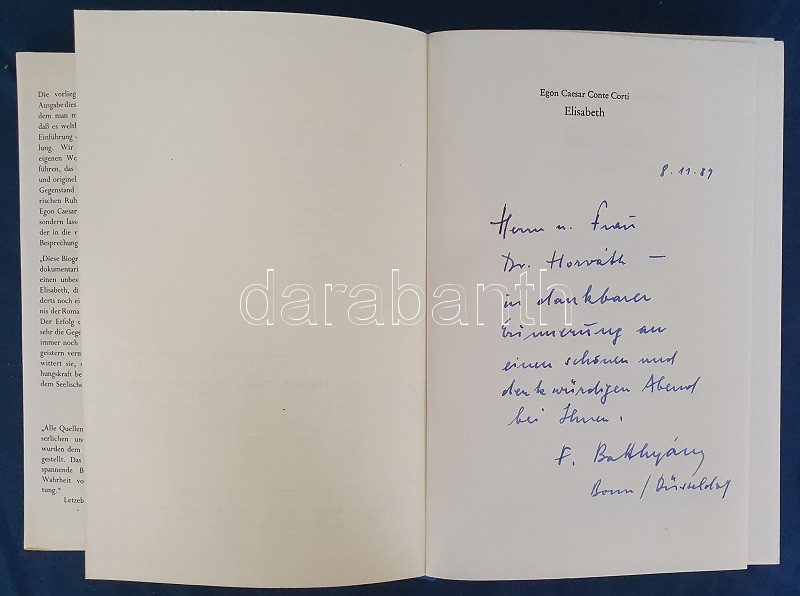 Die vorlieg
Ausgabe dies
dem man m
daß es weltl
Einführung
lung. Wir
eigenen Wo
führen, das
und originel
Gegenstand
rischen Ruh
Egon Caesar
sondern lass
der in die v
Besprechung
„Diese Biogr
dokumentari
einen unbes
Elisabeth, di
derts noch ei
nis der Roma
Der Erfolg
sehr die Gege
immer noch
geistern verm
wittert sie,
hungskraft be
dem Seelisch
„Alle Quellen
serlichen und
wurden dem
gestellt. Das
spannende B
Wahrheit vo
tung.“
Letzeb
Egon Caesar Conte Corti
Elisabeth
8.11.89
Herrn u. Frau
Dr. Horváth –
in dankbarer
Erinnerung an
einen schönen und
denkwürdigen Abend
bei Ihnen.
F. Batthyány
Bonn/Düsseldorf
darabanth